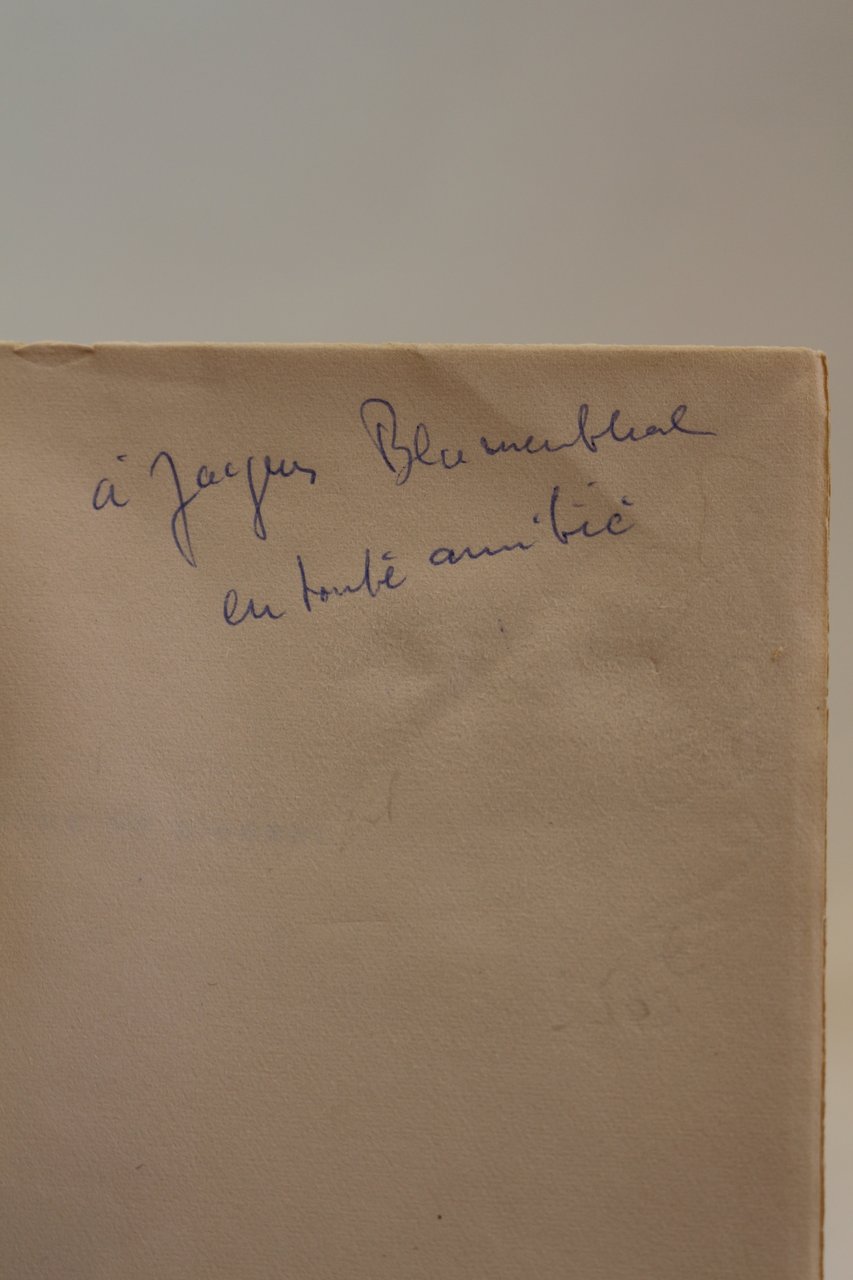 à Jacques Blumenthal
en toute amitié